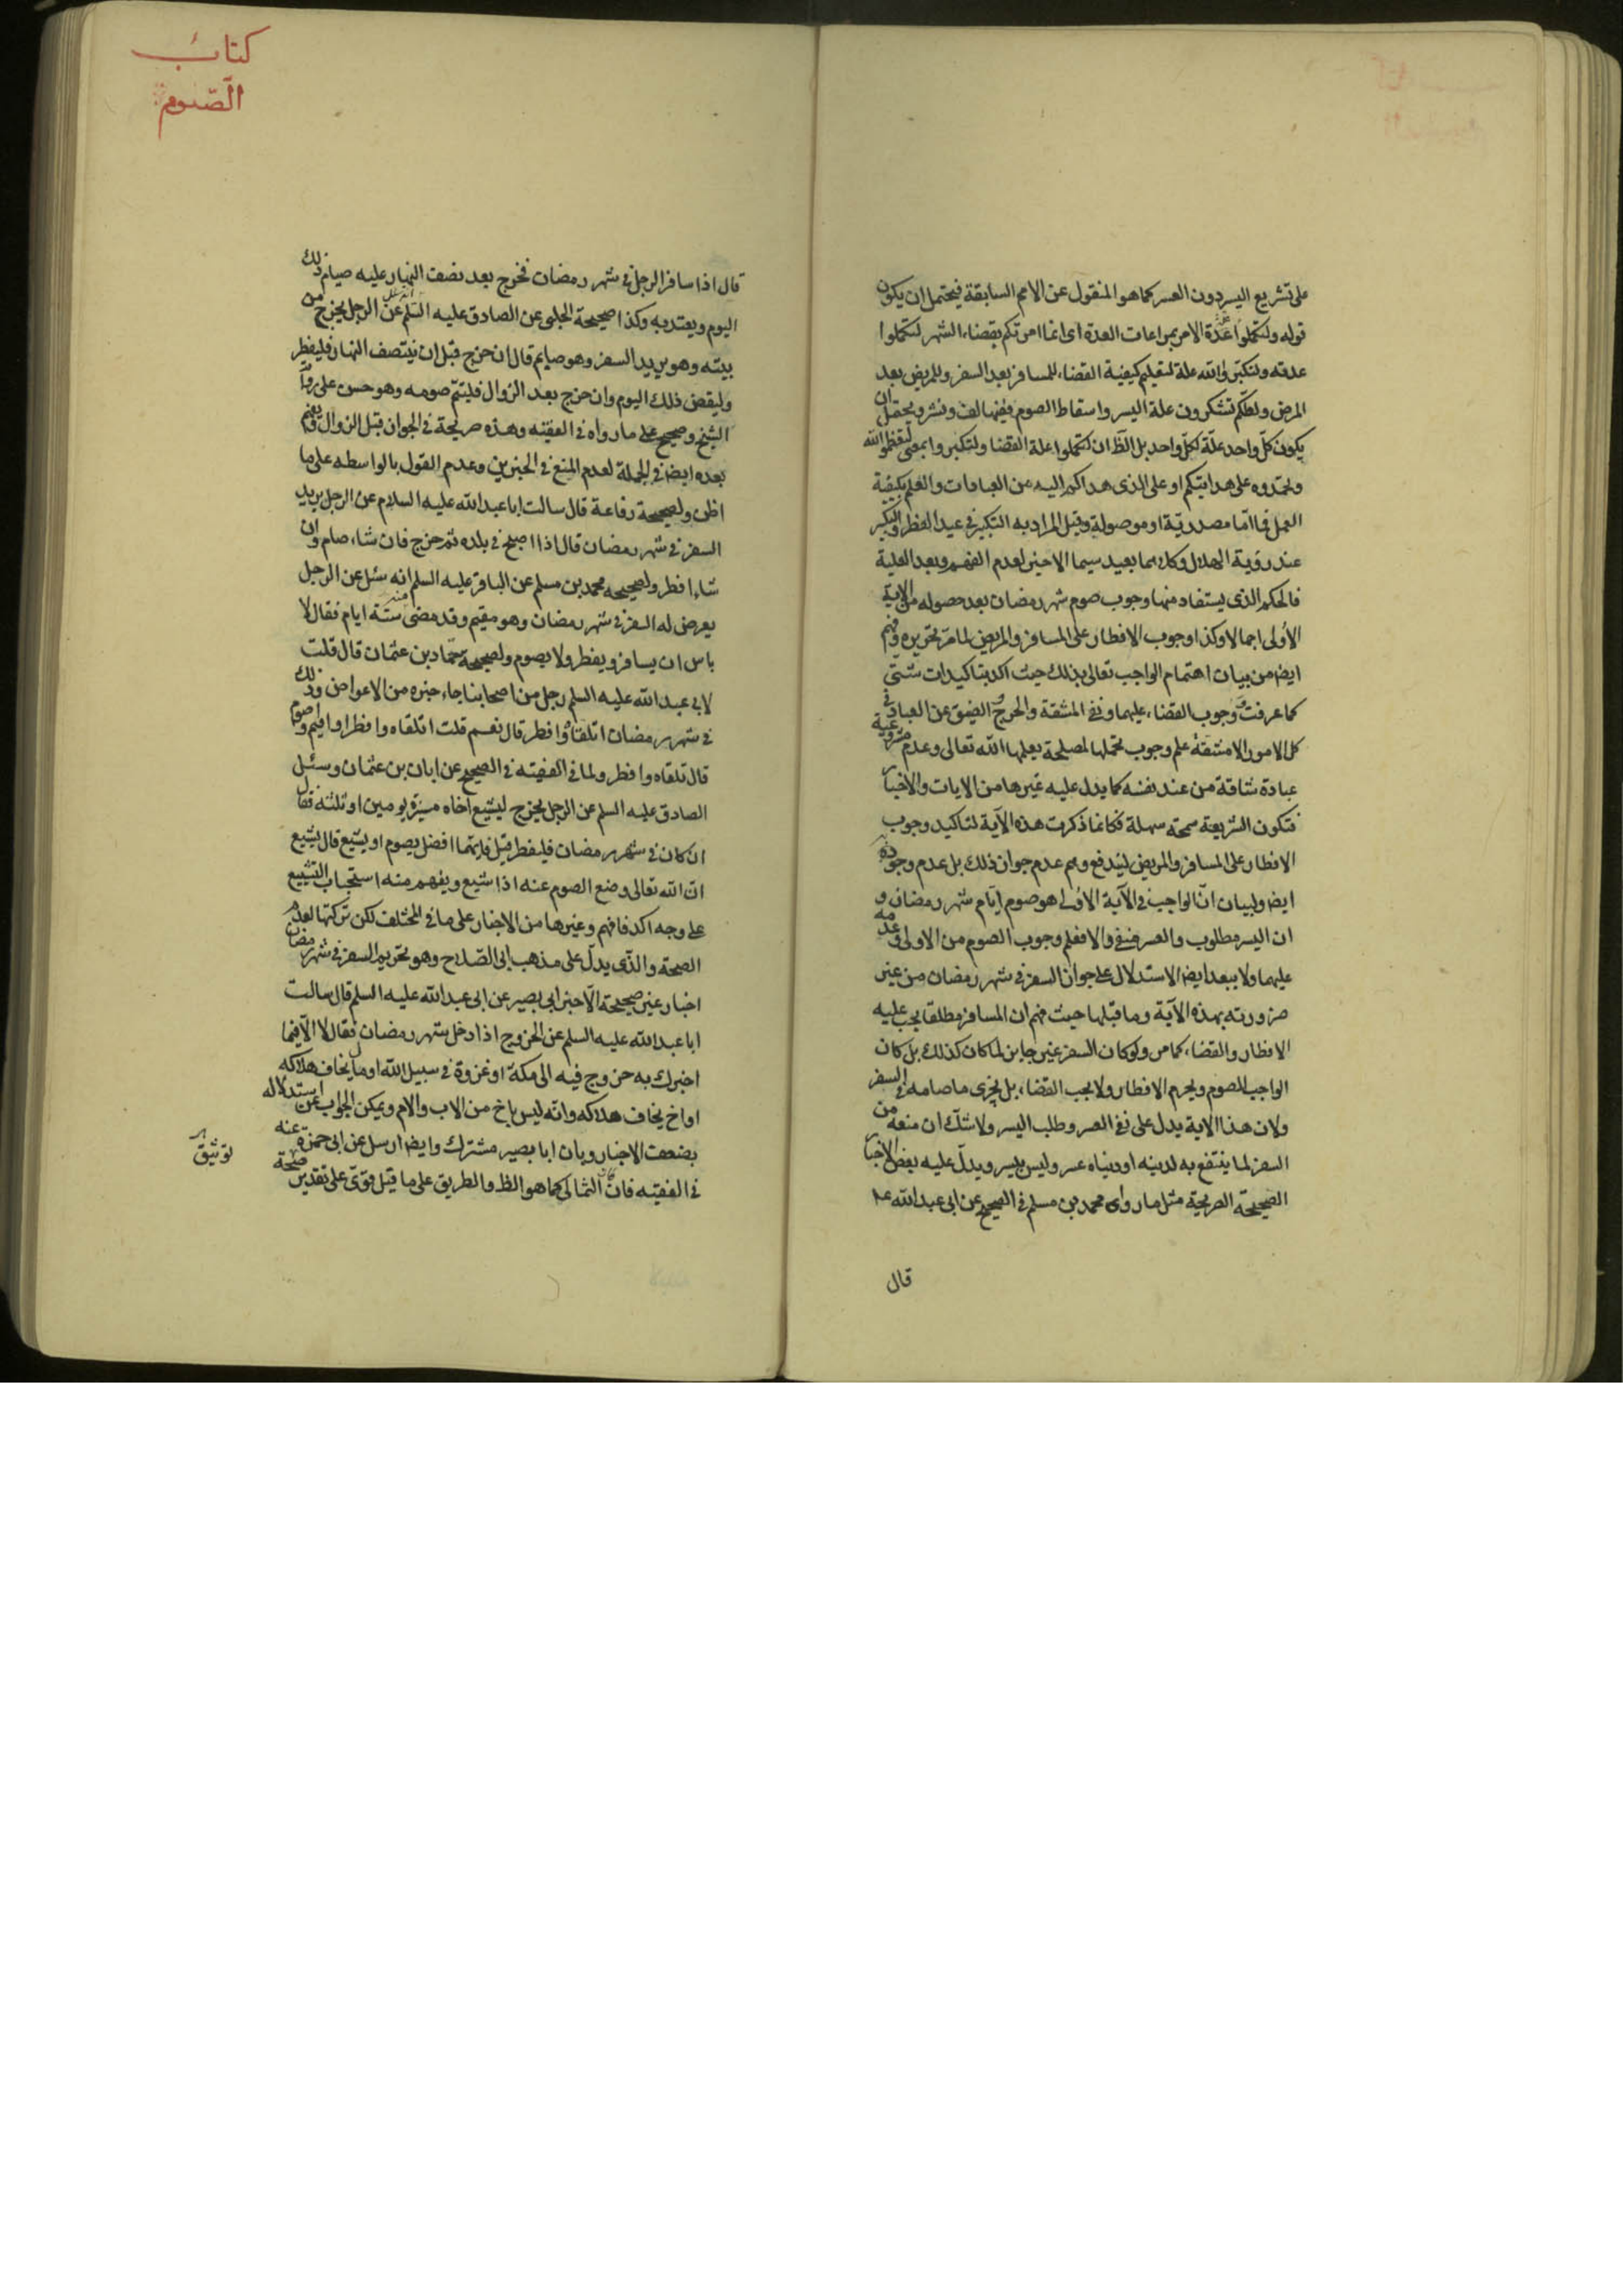 على تشريع اليسر دون العسر كما هو المنقول عن الامم السابقة فيحتمل ان يكون
قوله ولتكملوا العدة علة الامر بمراعات العدة اى انما امرتكم بقضاء الشهر لتكملوا
عدته ولتكبروا الله علة لتعليم كيفية القضاء للمسافر بعد السفر وللمريض بعد
المرض ولعلكم تشكرون علة اليسر واسقاط الصوم ففيها لف ونشر ويحتمل ان
يكون كل واحد علة لكل واحد بل الظ ان لتكملوا علة القضا ولتكبروا بمعنى لتعظموا الله
وتحمدوه على هدايتكم او على الذى هداكم اليه من العبادات والعلم بكيفية
العمل فما اما مصدرية او موصولة وقيل المراد به التكبير فى عيد الفطر والتكبير
عند رؤية الهلال وكلاهما بعيد سيما الاخير لعدم الفهم وبعد العلية
فالحكم الذى يستفاد منها وجوب صوم شهر رمضان بعد حصوله من الاية
الأولى اجمالا وكذا وجوب الافطار على المسافر والمريض لما مر تحريره وفهم
ايضا من بيان اهتمام الواجب تعالى بذلك حيث اكد بتاكيدات شتى
كما عرفت ووجوب القضاء عليهما ونفى المشقة والحرج والضيق عن العباد فى
كل الامور الا مشقة علم وجوب تحملها لمصلحة يعلمها الله تعالى وعدم مشروعية
عبادة شاقة من عند نفسه كما يدل عليه غيرها من الايات والاخبار
فتكون الشريعة سمحة سهلة فكانما ذكرت هذه الآية لتاكيد وجوب
الافطار على المسافر والمريض ليندفع وهم عدم جواز ذلك بل عدم وجوبه
ايضا ولبيان ان الواجب فى الآية الاولى هو صوم ايام شهر رمضان و
ان اليسر مطلوب والعسر منفى والا فعلم وجوب الصوم من الاولى وعدمه
عليهما ولا يبعد ايضا الاستدلال على جواز السفر فى شهر رمضان من غير
ضرورته بهذه الآية وما قبلها حيث فهم ان المسافر مطلقا يجب عليه
الافطار والقضاء كما مر ولو كان السفر غير جايز لما كان كذلك بل كان
الواجب الصوم ويحرم الافطار ولا يجب القضاء بل يجزى ما صامه فى السفر
ولان هذا الاية يدل على نفى العسر وطلب اليسر ولا شك ان منعه من
السفر لما ينتفع به لدينه او دنياه عسر وليس بيسر ويدل عليه بعض الاخبار
الصحيحة الصريحة مثل ما رواه محمد بن مسلم فى الصحيح عن ابى عبد الله عل
قال
كتاب
الصوم
قال اذا سافر الرجل فى شهر رمضان فخرج بعد نصف النهار عليه صيام ذلك
اليوم ويعتد به وكذا صحيحة الحلبى عن الصادق عليه السلم انه سئل عن الرجل يخرج من
بيته وهو يريد السفر وهو صايم قال ان خرج قبل ان ينتصف النهار فليفطر
وليقض ذلك اليوم وان خرج بعد الزوال فليتم صومه وهو حسن على رواية
الشيخ وصحيح على ما رواه فى الفقيه وهذه صريحة فى الجواز قبل الزوال وفهم
بعده ايضا فى الجملة لعدم المنع فى الخبرين وعدم القول بالواسطه على ما
اظن ولصحيحة رفاعة قال سالت ابا عبد الله عليه السلام عن الرجل يريد
السفر فى شهر رمضان قال اذا اصبح فى بلده ثم خرج فان شاء صام وان
شاء افطر ولصحيحه محمد بن مسلم عن الباقر عليه السلم انه سئل عن الرجل
يعرض له السفر فى شهر رمضان وهو مقيم وقد مضى منه ستة ايام فقال لا
باس ان يسافر ويفطر ولا يصوم ولصحيحة حماد بن عثمان قال قلت
لابى عبد الله عليه السلم رجل من اصحابنا جاء خبره من الاعواص وذلك
فى شهر رمضان اتلقاه وافطر قال نعم قلت اتلقاه وافطر او اقيم واصوم
قال تلقاه وافطر ولما فى الفقيه فى الصحيح عن ابان بن عثمان وسئل
الصادق عليه السلم عن الرجل يخرج ليشيع اخاه مسيرة يومين او ثلثه فقال
ان كان فى شهر رمضان فليفطر قيل فايهما افضل يصوم او يشيع قال يشيع
ان الله تعالى وضع الصوم عنه اذا شيع ويفهم منه استحباب التشييع
على وجه اكد فافهم وغيرها من الاخبار على ما فى المختلف لكن تركتها لعدم
الصحة والذى يدل على مذهب ابى الصلاح وهو تحريم السفر فى شهر رمضان
اخبار غير صحيحة الا خبر ابى بصير عن ابى عبد الله عليه السلم قال سالت
ابا عبد الله عليه السلم عن الخروج اذا دخل شهر رمضان فقال لا الا فيما
اخبرك به خروج فيه الى مكة او غزوة فى سبيل الله او مال يخاف هلاكه
او اخ يخاف هلاكه وانه ليس باخ من الاب والام ويمكن الجواب عن استدلاله
بضعف الاخبار وبان ابا بصير مشترك وايضا ارسل عن ابى حمزة عنه
فى الفقيه فان كان الثمالى كما هو الظ والطريق على ما قيل قوى على تقدير صحة
توثيق